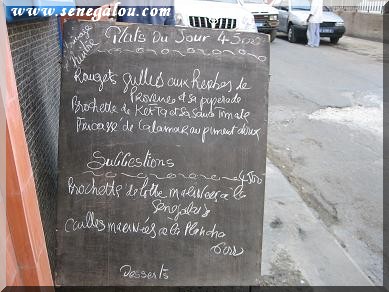 www.senegalou.com
Plats Du Jour 4500
Rougets Grillés aux herbes de
Provence et sa piperade
Brochette de Kefta et sa sauce Tomate
Fricassé de Calamar au piment doux
Suggestions
4500
Brochette de lotte marinées à la
Sénégalais
Cailles marinées à la Plancha
6000
Desserts